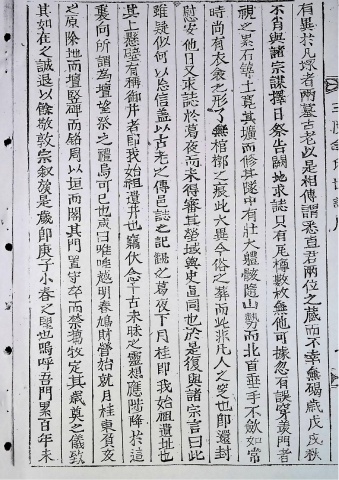 有異於凡塚者兩墓古老以是相傳謂悉直君兩位之藏而不幸無碣歲戊戌秋
不肖與諸宗謀擇日祭告闢地求誌只有瓦樽數枚無他可據忽有誤穿羨門者
視之累石築土寬其壙而修其隧中有壯大體骸隨山勢而北首垂手不斂如常
時尚有衣衾之形了無棺槨之痕此大異今俗之葬而此非凡人之窆也即還封
慰安他日又求誌於葛夜而未得審其塋域與史直同也於是復與諸宗言曰此
雖疑似何以忽信蓋以古老之傳邑誌之記謎之葛夜下月桂即我始祖遺址也
其上懸壁有稱御井者即我始祖遺井也竊伏念千古未昧之靈想應陟降於這
裏向所謂為壇望祭之禮烏可已也咸曰唯唯越明春鳩財營始就月桂東負亥
之原除地而壇竪碑而銘周以垣而閣其門置守卒而禁蒭牧定其歲奠之儀致
其如在之誠退以餘敬敦宗叙族是歲即庚子小春之望也嗚呼吾門累百年未